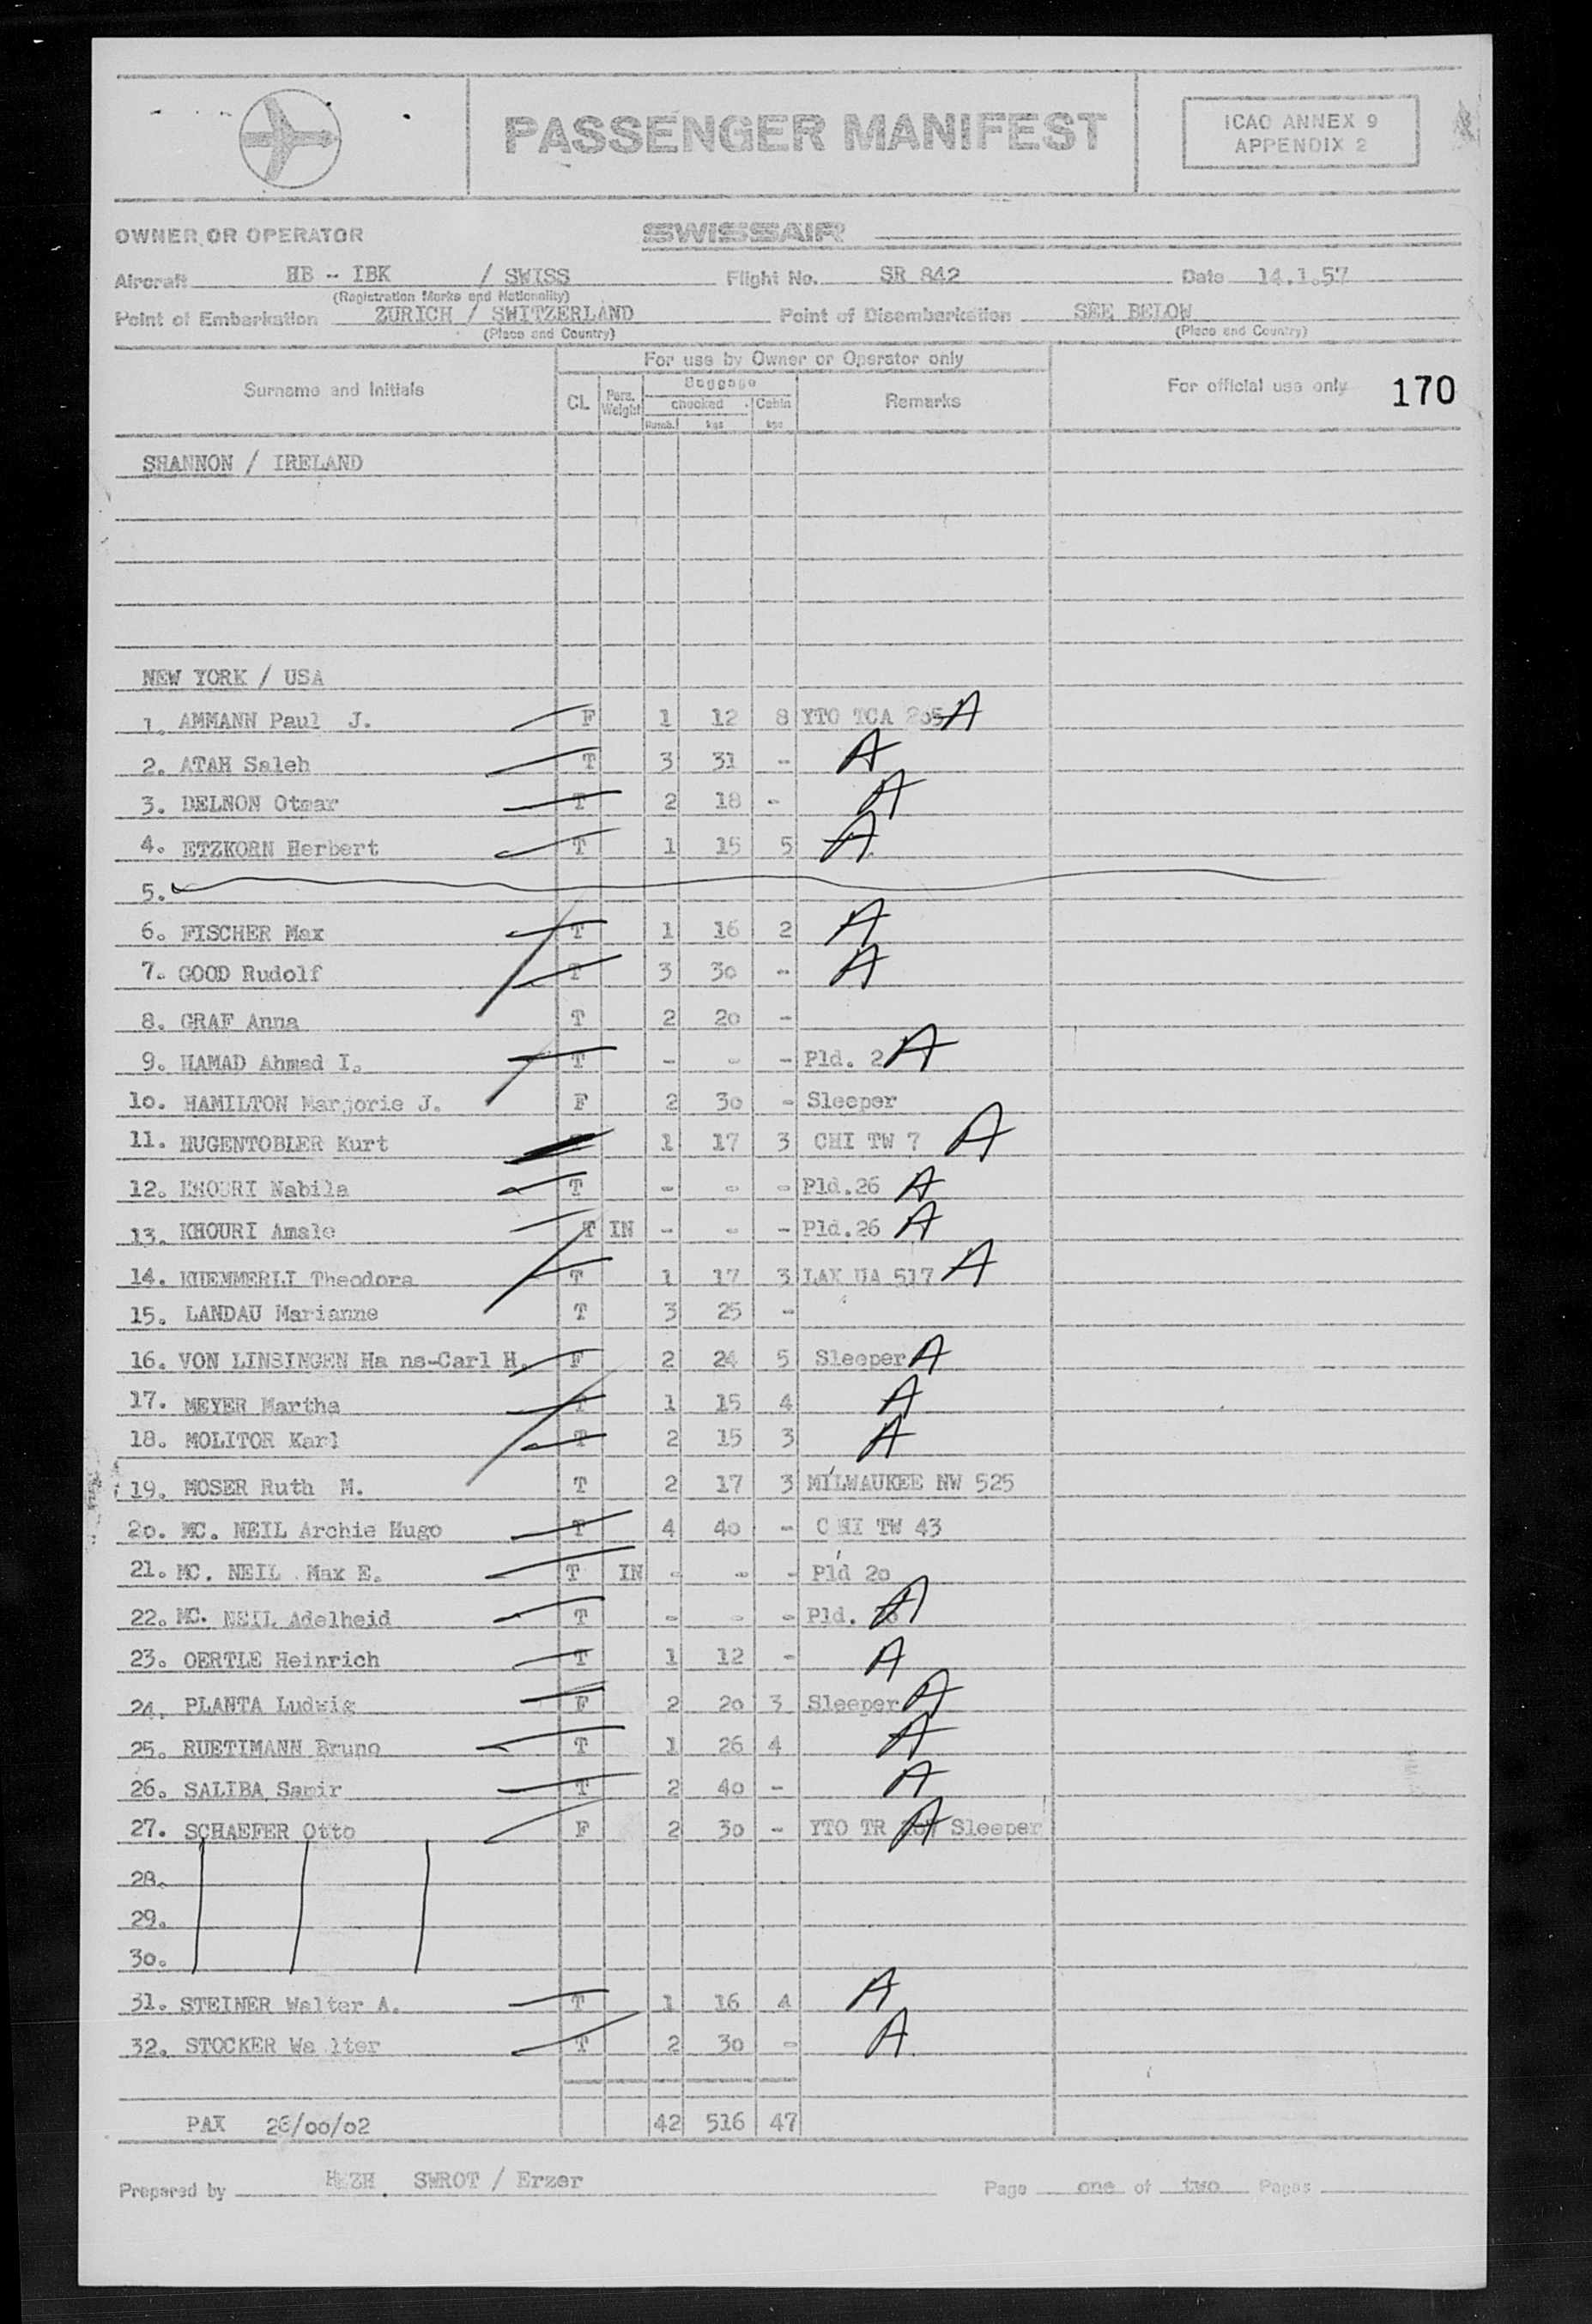 PASSENGER MANIFEST
ICAO ANNEX 9
APPENDIX 2
OWNER OR OPERATOR SWISSAIR
Aircraft HB - IBK / SWISS Flight No. SR 842 Date 14.1.57
(Registration Marks and Nationality)
Point of Embarkation ZURICH / SWITZERLAND Point of Disembarkation SEE BELOW
(Place and Country) (Place and Country)
For use by Owner or Operator only
Surname and Initials CL Pers. Weight Baggage checked Numb. kgs Cabin kgs Remarks For official use only 170
SHANNON / IRELAND
NEW YORK / USA
1. AMMANN Paul J. F 1 12 8 YTO TCA A
2. ATAH Saleh T 3 31 - A
3. DELNON Otmar T 2 18 - A
4. ETZKORN Herbert T 1 15 5 A
5.
6. FISCHER Max T 1 16 2 A
7. GOOD Rudolf T 3 30 - A
8. GRAF Anna T 2 20 -
9. HAMAD Ahmad I. T - - - Pld. 2 A
10. HAMILTON Marjorie J. F 2 30 - Sleeper
11. HUGENTOBLER Kurt 1 17 3 CHI TW 7 A
12. KHOURI Nabila T - - - Pld.26 A
13. KHOURI Amale T IN - - - Pld.26 A
14. KUEMMERLI Theodora T 1 17 3 LAX UA 517 A
15. LANDAU Marianne T 3 25 -
16. VON LINSINGEN Ha ns-Carl H. F 2 24 5 Sleeper A
17. MEYER Martha T 1 15 4 A
18. MOLITOR Karl T 2 15 3 A
19. MOSER Ruth M. T 2 17 3 MILWAUKEE NW 525
20. MC. NEIL Archie Hugo T 4 40 - C HI TW 43
21. MC. NEIL Max E. T IN - - - Pld 20
22. MC. NEIL Adelheid T - - - Pld. A
23. OERTLE Heinrich T 1 12 - A
24. PLANTA Ludwig F 2 20 3 Sleeper A
25. RUETIMANN Bruno T 1 26 4 A
26. SALIBA Samir T 2 40 - A
27. SCHAEFER Otto F 2 30 - YTO TR A Sleeper
28.
29.
30.
31. STEINER Walter A. T 1 16 4 A
32. STOCKER Wa lter T 2 30 - A
PAX 26/00/02 42 516 47
Prepared by SWROT / Erzer Page one of two Pages